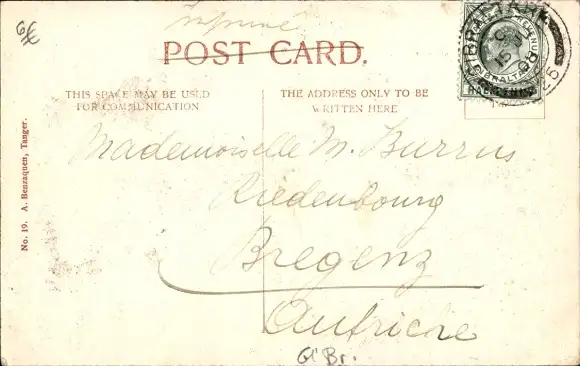 Imprimé
POST CARD.
THIS SPACE MAY BE USED
FOR COMMUNICATION
THE ADDRESS ONLY TO BE
WRITTEN HERE
GIBRALTAR
HALFPENNY
No. 19. A. Benzaquen, Tanger.
Mademoiselle M. Burrus
Riedenbourg
Bregenz
Autriche
G Br.